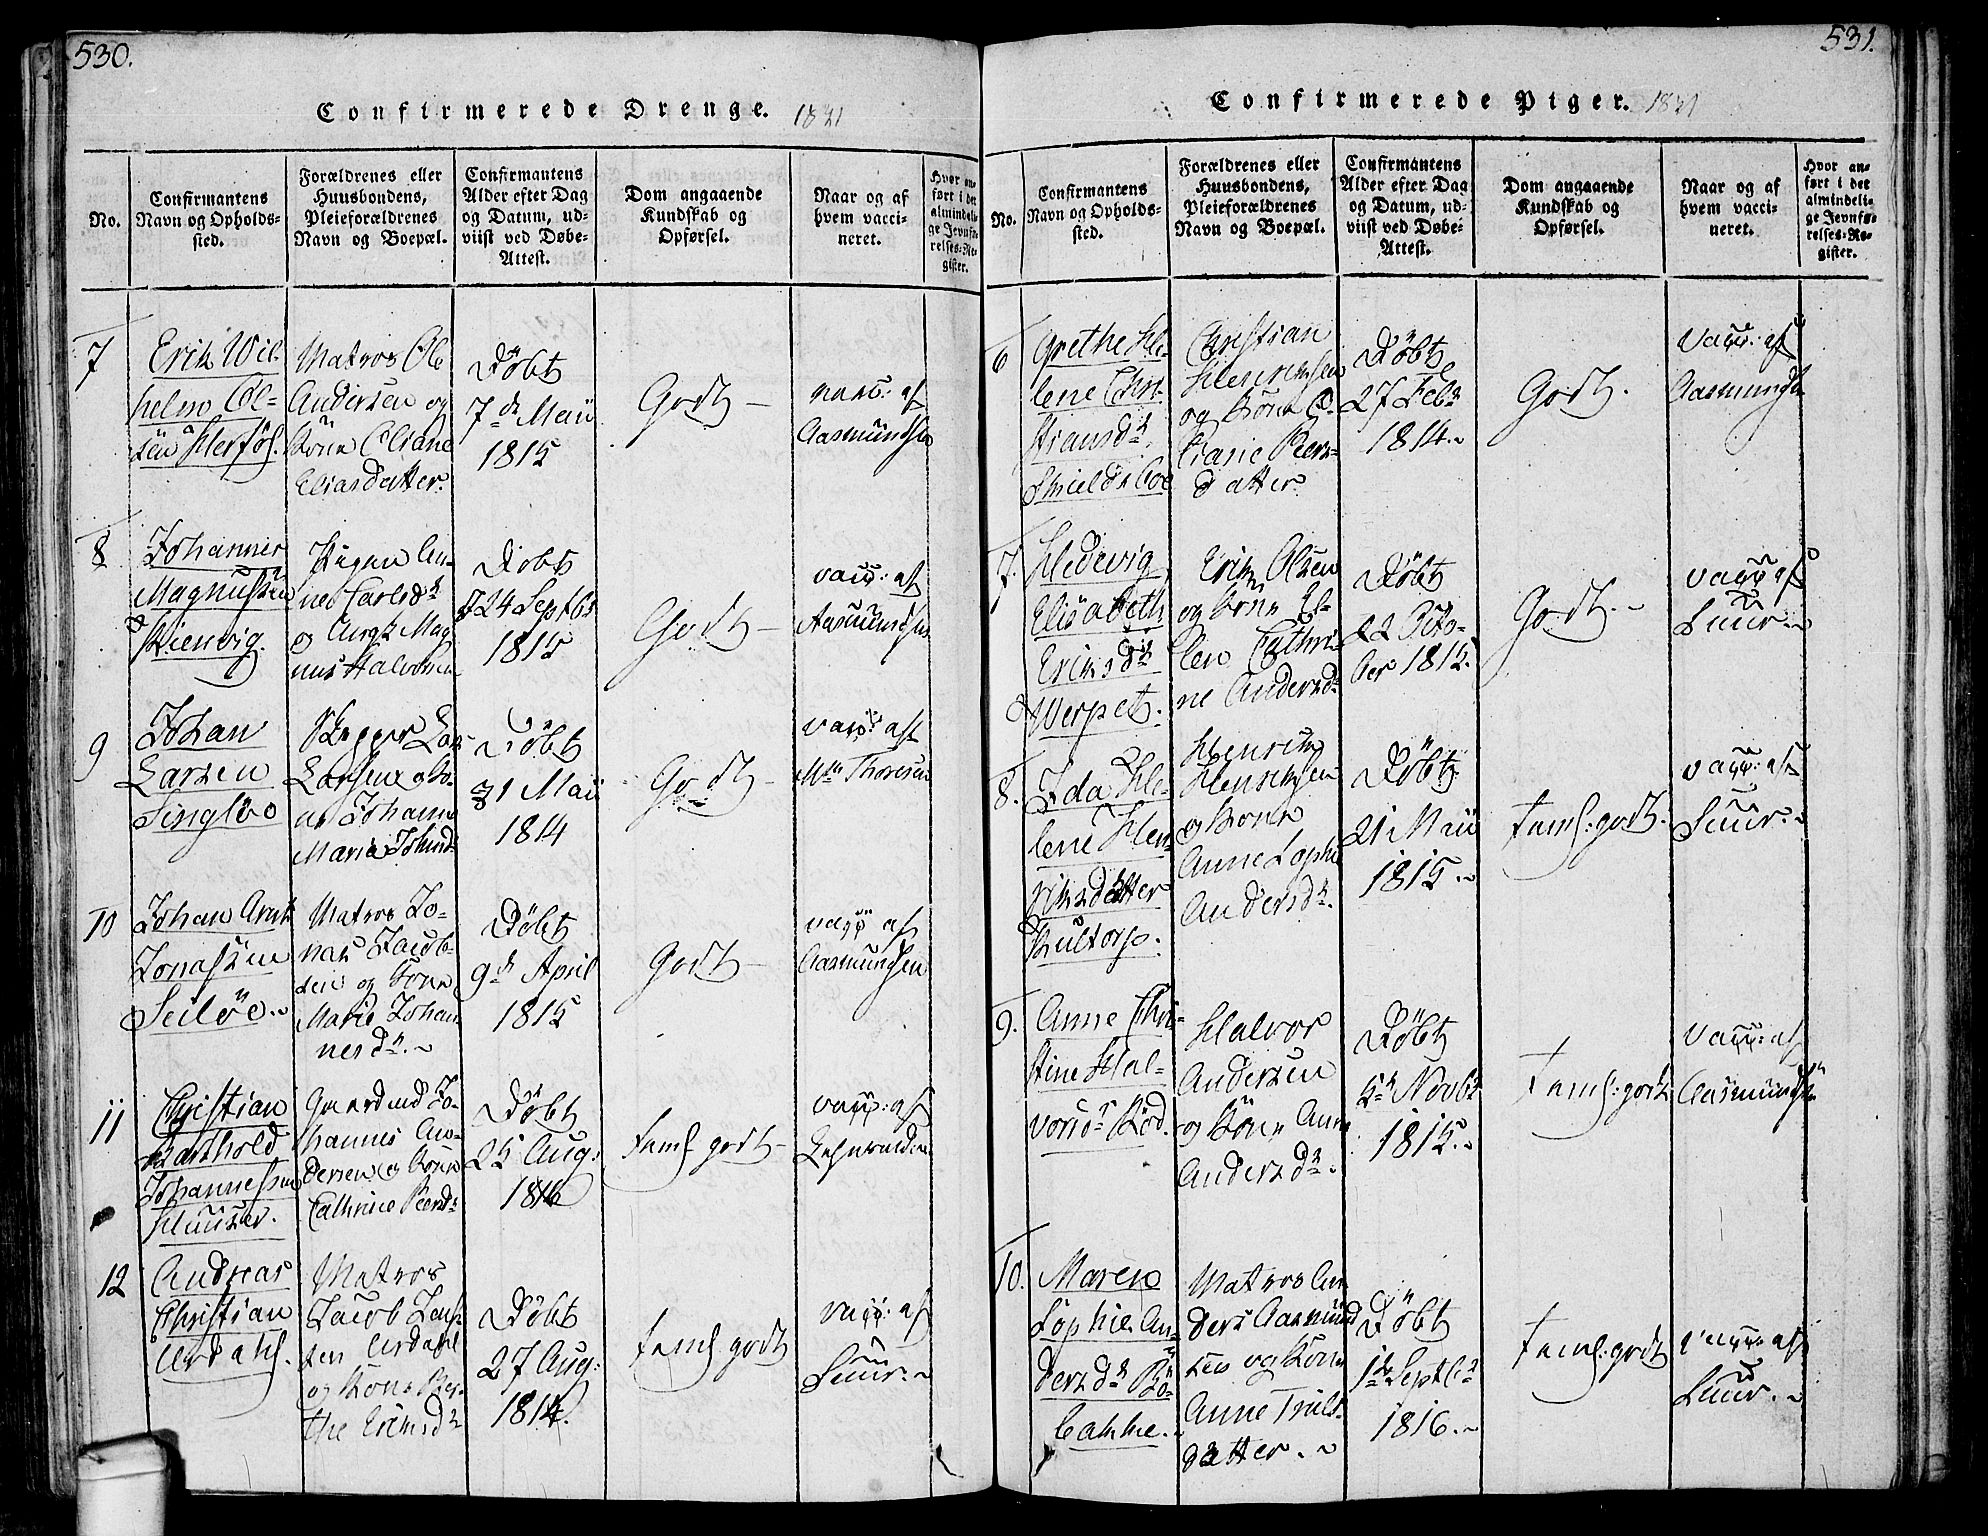 530.
Confirmerede Drenge. 1831
No.
Confirmantens
Navn og Opholds-
sted.
Forældrenes eller
Huusbondens,
Pleieforældrenes
Navn og Boepæl.
Confirmantens
Alder efter Dag
og Datum, ud-
viist ved Døbe-
Attest.
Dom angaaende
Kundskab og
Opførsel.
Naar og af
hvem vacci-
neret.
Hvor an-
ført i det
almindeli-
ge Jevnfø-
relses-Re-
gister.
7
Erik Wil-
helm Ol-
sen
Matros Ole
Andersen og
Kone Eliane
Eliasdatter.
Döbt
7de Maii
1815
Godt –
vacc: af
Aasmundsen
8
Johannes
Magnussen
Pigen An-
ne Carlsdr
og Ungk: Mag-
nus Halvorsen
Döbt
24 Septbr
1815
Godt –
vacc: af
Aasmundsen
9
Johan
Larsen
Lars
Larsen og Ko-
ne Johanne
Maria
Döbt
31 Maii
1814
Godt –
vacc: af
Mme Thoresen
10
Johan Arnt
Jonassen
Seilöe.
Matros Jo-
nas Jacob-
sen og Kone
Marie Johan-
nesdr.
Döbt
9de April
1815
Godt –
vacc: af
Aasmundsen
11
Christian
Barthold
Johannessen
Gaardmd Jo-
hannes An-
dersen og Kone
Cathrine Peersdr
Döbt
25 Aug:
1816
Teml. godt –
vacc: af
12
Andreas
Christian
Urdahl.
Matros
Jacob Jens-
sen Urdahl
og Kone Ber-
the Eriksdr
Döbt
27 Aug:
1814.
Teml. godt
vacc: af
Suur.
531.
Confirmerede Piger. 1831
No.
Confirmantens
Navn og Opholds-
sted.
Forældrenes eller
Huusbondens,
Pleieforældrenes
Navn og Boepæl.
Confirmantens
Alder efter Dag
og Datum, ud-
viist ved Døbe-
Attest.
Dom angaaende
Kundskab og
Opførsel.
Naar og af
hvem vacci-
neret.
Hvor an-
ført i det
almindeli-
ge Jevnfø-
relses-Re-
gister.
6
Grethe He-
lene Chri-
stiansdr
Christian
Henriksen
og Kone
Peers-
datter
Döbt
27 Febr
1814.
Godt.
Vacc: af
Aasmundsen
7.
Hedevig
Elisabeth
Eriksdr
Werpet.
Erik Olsen
og Kone El-
len Cathri-
ne Andersdr
Döbt
22 Octo-
ber 1815.
Godt.
Vacc: af
Suur.
8.
Ida He-
lene Hen-
riksdatter
Hultorp.
Henrik
Henriksen
og Kone
Anne Sophie
Andersdr.
Döbt
21 Maii
1815.
Teml: godt.
Vacc: af
Suur.
9.
Anne Chri-
stine Hal-
vorsdr Röd.
Halvor
Andersen
og Kone Anne
Andersdr.
Döbt
5te Novbr
1815.
Teml: godt
Vacc: af
Aasmundsen
10.
Maren
Sophie An-
dersdr
Matros An-
ders Aasmund-
sen og Kone
Anne Truls-
datter.
Döbt
1de Septbr
1816.
Teml: godt
Vacc: af
Suur.